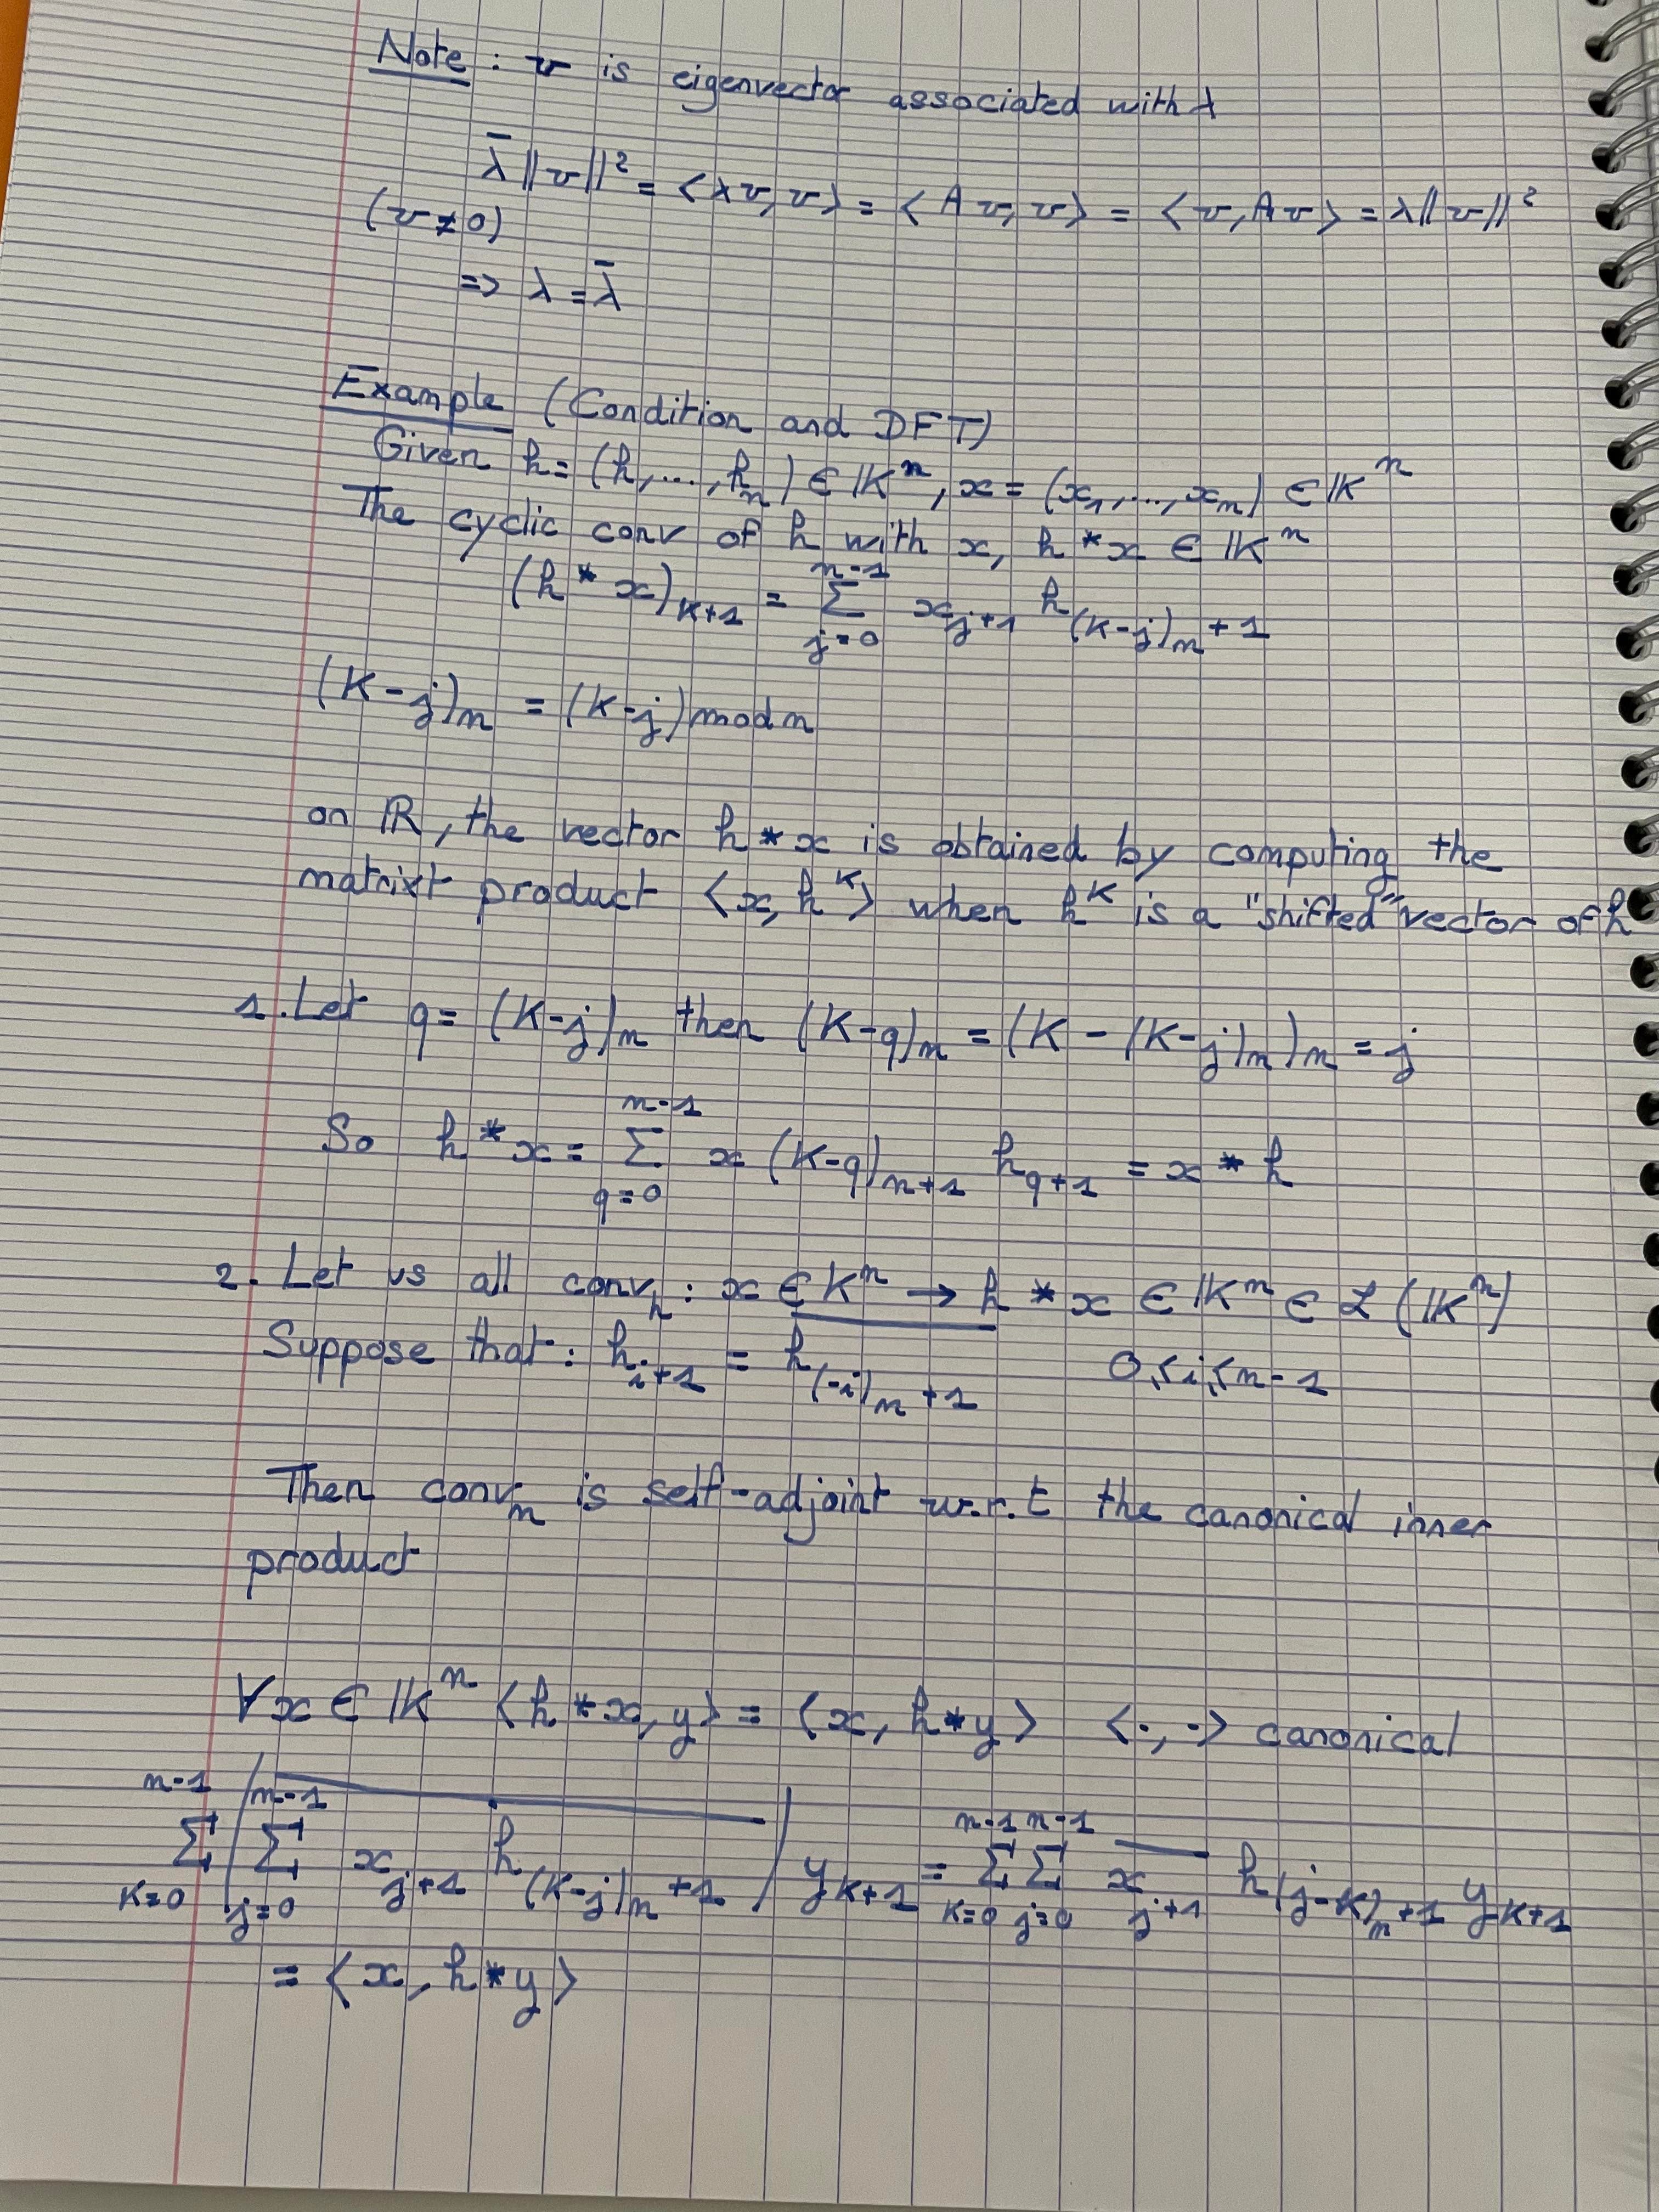 Note : v is eigenvector associated with λ
λ̄ ||v||² = <λv, v> = <Av, v> = <v, Av> = λ||v||²
(v ≠ 0)
=> λ = λ̄
Example (Condition and DFT)
Given h = (h,..., h_n) ∈ IK^n, x = (x_1,..., x_n) ∈ IK^n
The cyclic conv of h with x, h * x ∈ IK^n
(h * x)_{K+1} = Σ_{j=0}^{n-1} x_{j+1} h_{(K-j)_n + 1}
(K-j)_n = (K-j) mod n
on IR, the vector h * x is obtained by computing the
matrixt product <x, h^K> when h^K is a "shifted" vector of h
1. Let q = (K-j)_n then (K-q)_n = (K - (K-j)_n)_n = j
So h * x = Σ_{q=0}^{n-1} x (K-q)_{n+1} h_{q+1} = x * h
2. Let us all conv_h : x ∈ K^n → h * x ∈ IK^n ∈ L (IK^n)
Suppose that : h_{i+1} = h_{(-i)_n + 1} 0 ≤ i ≤ n-1
Then conv_n is self-adjoint w.r.t the canonical inner
product
∀x ∈ IK^n <h * x, y> = <x, h * y> <·, ·> canonical
Σ_{K=0}^{n-1} ( \overline{Σ_{j=0}^{n-1} x_{j+1} h_{(K-j)_n + 1}} ) y_{K+1} = Σ_{K=0}^{n-1} Σ_{j=0}^{n-1} \overline{x_{j+1}} h_{(j-K)_n + 1} y_{K+1}
= <x, h * y>